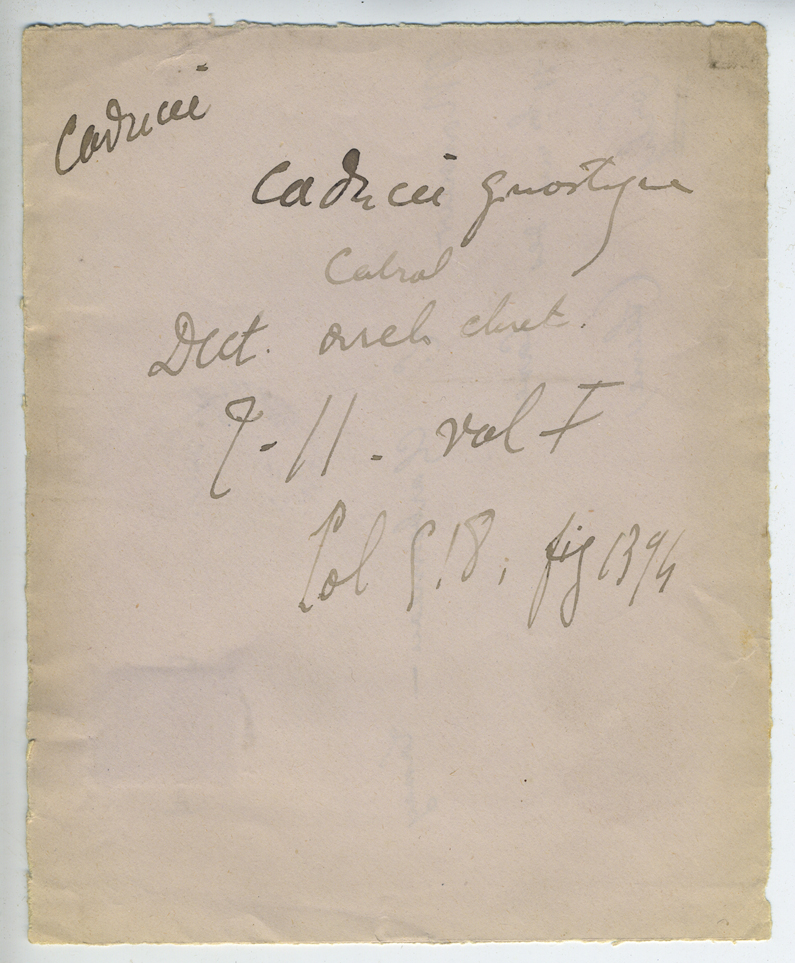 Caducée
Caducée gnostique
Cabrol
Dict. arch chret.
T - 11 - vol I
Col 918, fig 1394